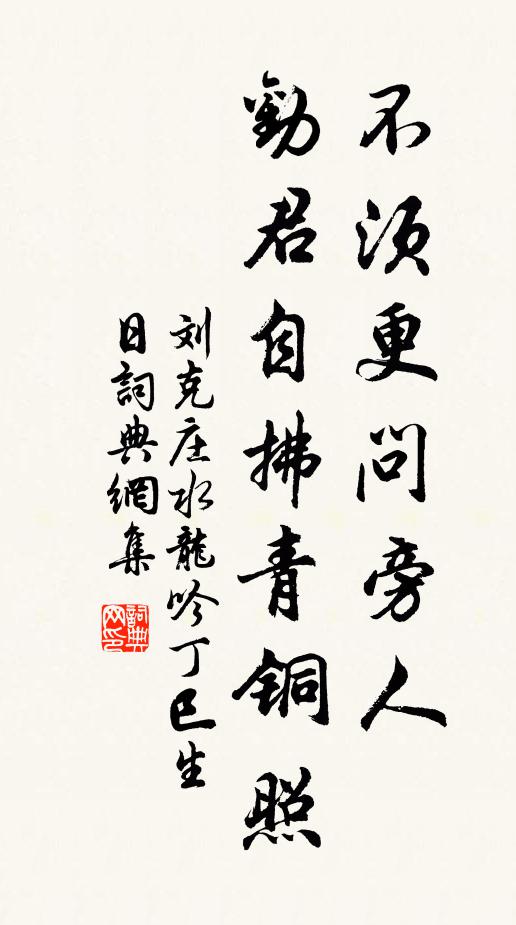 不须更问旁人
勸君自拂青铜照
刘克庄水龍吟丁巳生
日詞典網集
詞典网印